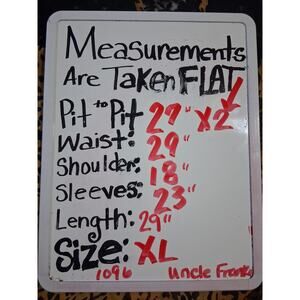 Measurements
Are Taken FLAT
Pit to Pit 27" X2
Waist: 29"
Shoulder: 18"
Sleeves: 23"
Length: 29"
Size: XL
1096 Uncle Franks